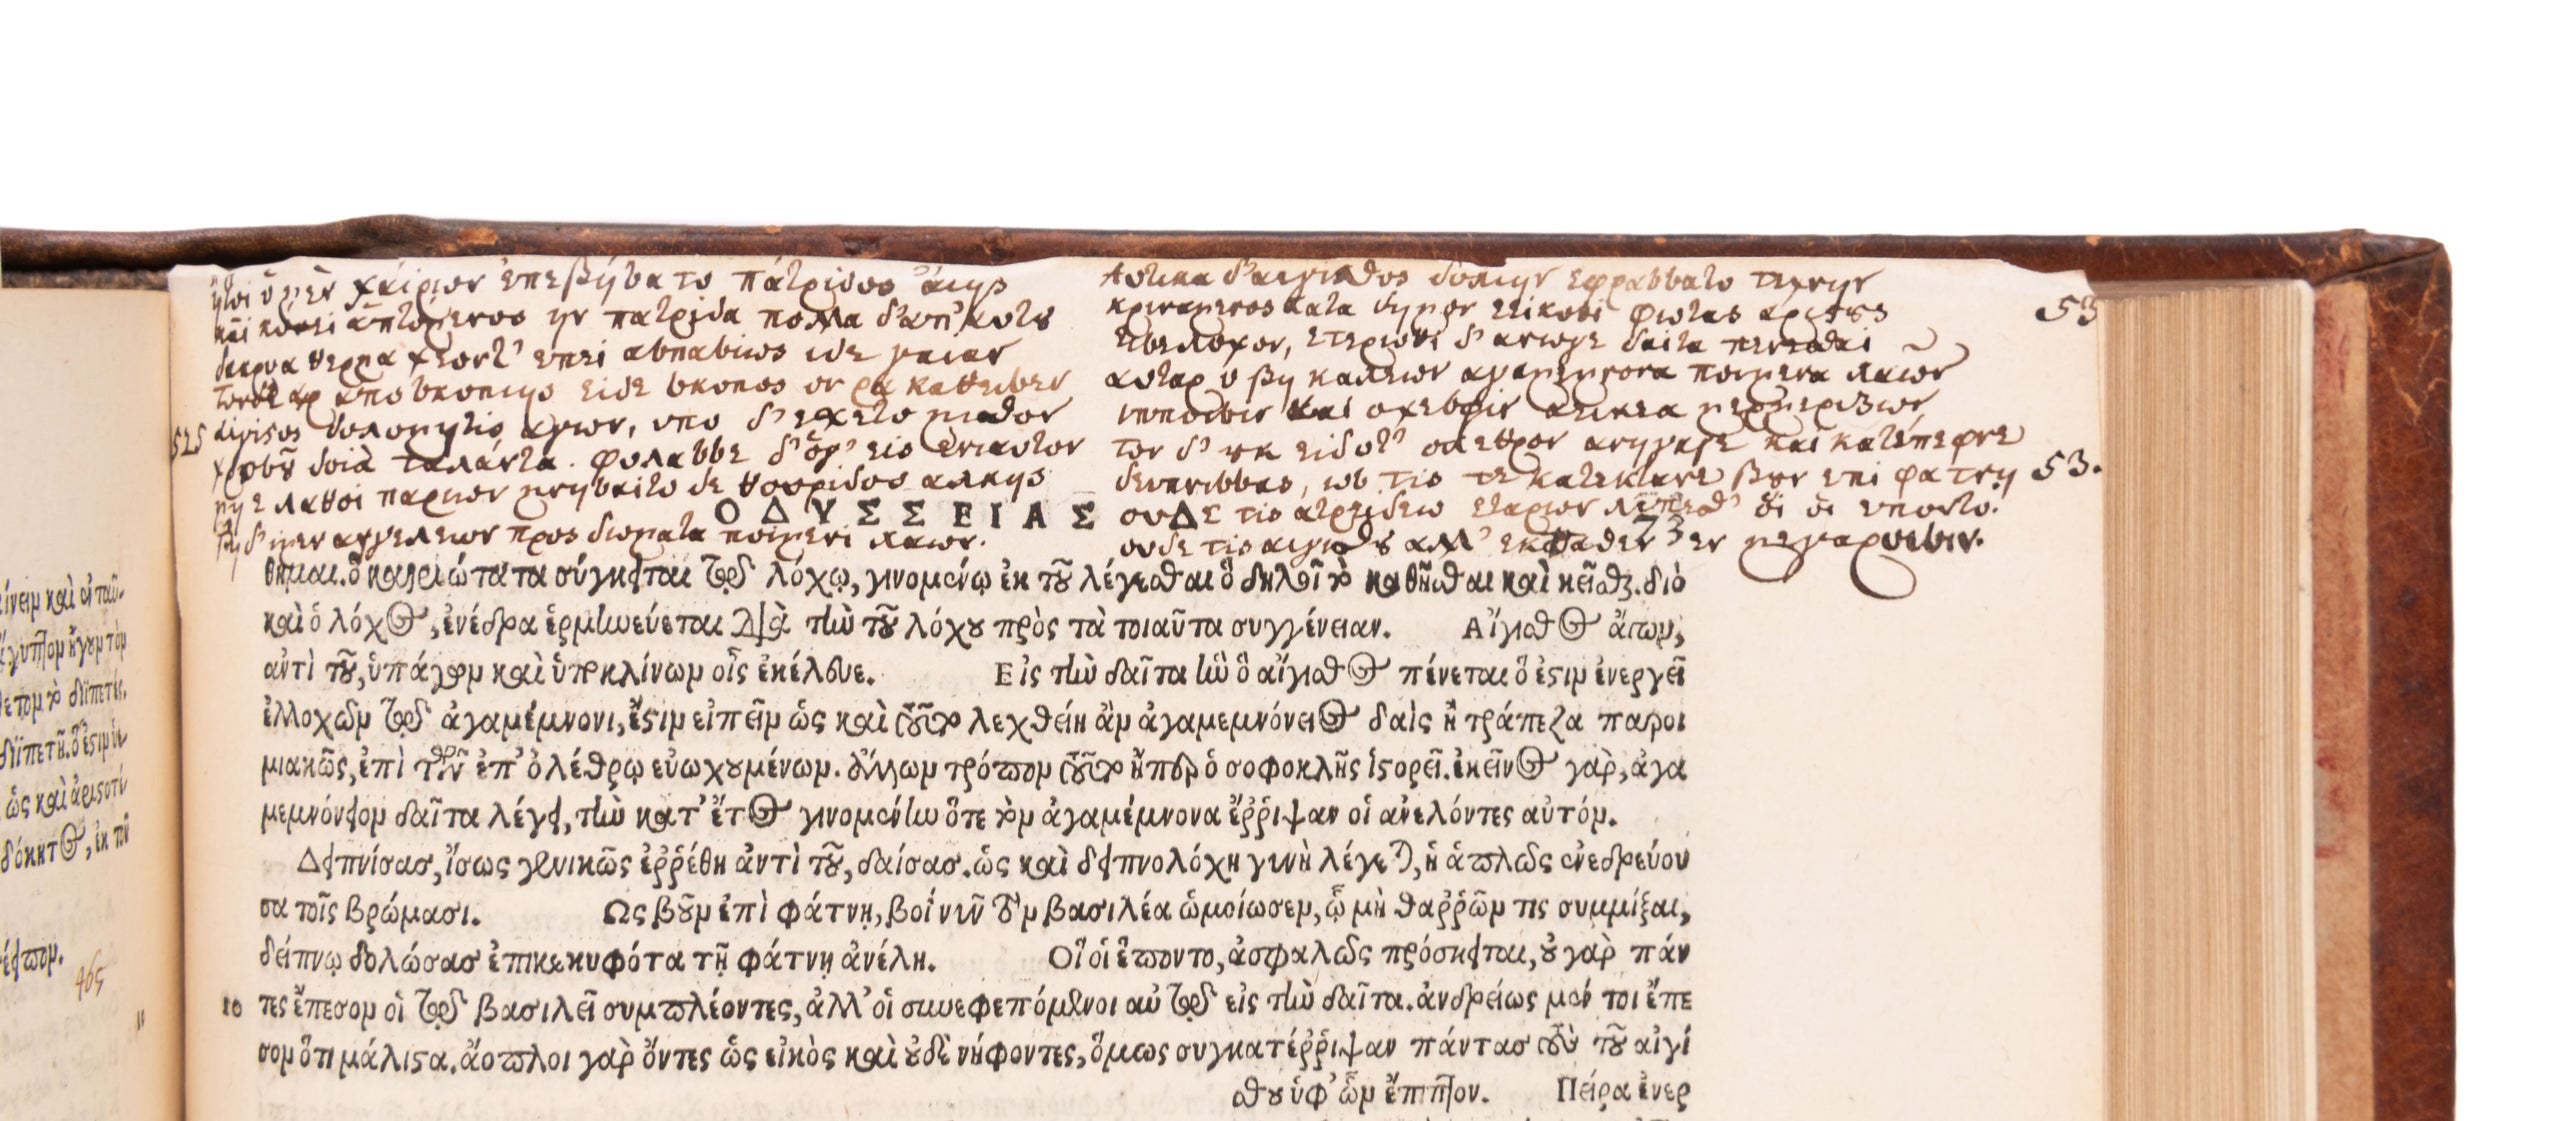 ητοι ὁ μὲν χαίρων ἐπεβήσατο πάτριδος αιης
και κυνει ἁπτόμενος ην πατριδα πολλα δ' απ' αυτου
δακρυα θερμα χεοντ' επει ασπασιως ιδε γαιαν
τον δ' αρ απο σκοπιης ειδε σκοπος ον ρα καθεισεν
525 αιγισθος δολομητις αγων, υπο δ' εσχετο μισθον
χρυσοῦ δοιὰ ταλάντα. φυλασσε δ' ὅγ' εις ενιαυτον
μη ε λαθοι παριων μνησαιτο δε θουριδος αλκης
βη δ' ιμεν αγγελεων προς δωματα ποιμενι λαων.
Αυτικα δ' αιγισθος δολιην εφρασσατο τεχνην
κριναμενος κατα δημον εεικοσι φωτας αριστους 53
εισε λοχον, ετερωθι δ' ανωγε δαιτα πενεσθαι
αυταρ ὁ βη καλεων αγαμεμνονα ποιμενα λαῶν
ιπποισιν και οχεσφιν αεικεα μερμηριζων
τον δ' ουκ ειδοτ' ολεθρον ανηγαγε και κατέπεφνε
δειπνισσας, ως τις τε κατεκτανε βουν επι φατνη 53.
ουδε τις ατρειδεω εταρων λιπεθ' ὁι ὁι εποντο.
ουδε τις αιγισθου αλλ' εκταθεν εν μεγαροισιν.
ΟΔΥΣΣΕΙΑΣ Δ 73
θημαι. ὃ καιριώτατα σύγκειται τῷ λόχῳ, γινομένῳ ἐκ τοῦ λέγεσθαι ὃ δηλοῖ τὸ καθῆσθαι καὶ κεῖσθαι. διὸ
καὶ ὁ λόχος, ἐνέδρα ἑρμηνεύεται διὰ τὴν τοῦ λόχου πρὸς τὰ τοιαῦτα συγγένειαν. Αἴγισθος ἄγων,
ἀντὶ τοῦ, ὑπάγων καὶ ὑποκλίνων οἷς ἐκέλευε. Εἰς τὴν δαῖτα ἣν ὁ αἴγισθος πένεται ὅ ἐστιν ἐνεργεῖ
ἐλλοχῶν τῷ ἀγαμέμνονι, ἔστιν εἰπεῖν ὡς καὶ τοῦτο λεχθείη ἂν ἀγαμεμνόνειος δαὶς ἡ τράπεζα παροι
μιακῶς, ἐπὶ τῶν ἐπ' ὀλέθρῳ εὐωχουμένων. ἄλλων τρόπον τοῦτο ἤπερ ὁ σοφοκλῆς ἱστορεῖ. ἐκεῖνος γὰρ, ἀγα
μεμνόνειον δαῖτα λέγει, τὴν κατ' ἔτος γινομένην ὅτε τὸν ἀγαμέμνονα ἔῤῥιψαν οἱ ἀνελόντες αὐτόν.
Δειπνίσας, ἴσως γενικῶς ἐῤῥέθη ἀντὶ τοῦ, δαίσας. ὡς καὶ δειπνολόχη γυνὴ λέγεται, ἡ ἁπλῶς ἐνεδρεύου
σα τοῖς βρώμασι. Ως βοῦν ἐπὶ φάτνῃ, βοῒ νῦν τὸν βασιλέα ὡμοίωσεν, ᾧ μὴ θαῤῥῶν τις συμμίξαι,
δείπνῳ δολώσας ἐπικεκυφότα τῇ φάτνῃ ἀνέλῃ. Οἵ οἱ ἕποντο, ἀσφαλῶς πρόσκειται, οὐ γὰρ πάν
10 τες ἔπεσον οἱ τῷ βασιλεῖ συμπλέοντες, ἀλλ' οἱ συνεφεπόμενοι αὐτῷ εἰς τὴν δαῖτα. ἀνδρείως μέν τοι ἔπε
σον ὅτι μάλιστα. ἄοπλοι γὰρ ὄντες ὡς εἰκὸς καὶ οὐδὲ νήφοντες, ὅμως συγκατέῤῥιψαν πάντας σὺν τοῦ αἰγί
σθου ὑφ' ὧν ἔπιπτον. Πείρα ἐνερ
465